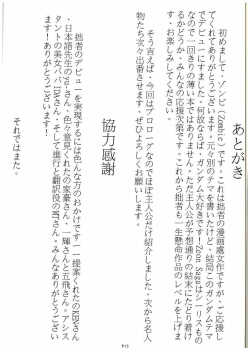 あとがき
初めまして・ゾンビ(Zombi)です・これは拙者の漫画處女作ですが、ご応援し
てくれてありがとうございます・元々別のテーマを書いたけど・結局このザンダムテーマ
でデビューにすました・何故ならば・ザンダム大好きです！Zeon Sagaはシリーズもの
なので一回きりの薄い本ではありません・ただ主人公が予想通りの結末にたどり着け
るかどうか、みんなの応援次第です・これから拙者も一生懸命作品のレベルを上げま
す・お楽しみしてください。
そう言えば、今回はプロローグなのでほぼ主人公だけ紹介しました・次から名人
物たち次々出番させます・ぜひよろしくお願いします。
協力感謝
拙者のデビューを実現するには色んな方のおかけです――提案くれたの
さん
・日本語先生の
さん・色々意見くれたの変豪さん、一輝さんと五飛さん・アシス
タントの美女パ
さん・そして進行と翻訳役の
さん・みんなありがとうござい
ます！ありがとうございます！
それではまた・